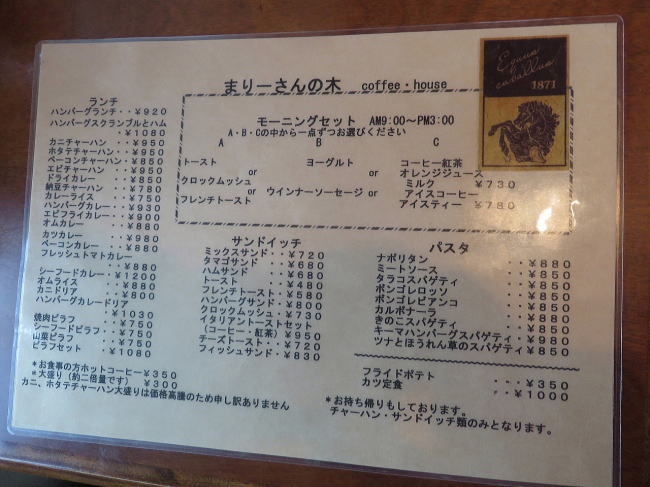 まりーさんの木 coffee・house
Equus
caballus
1871
モーニングセット AM9:00～PM3:00
A・B・Cの中から一点ずつお選びください
A B C
トースト
or
クロックムッシュ
or
フレンチトースト
ヨーグルト
or
ウインナーソーセージ or
コーヒー紅茶
オレンジジュース
ミルク ¥730
アイスコーヒー
アイスティー ¥780
ランチ
ハンバーグランチ・・¥920
ハンバーグスクランブルとハム
・・¥1080
カニチャーハン ・・¥950
ホタテチャーハン・・¥950
ベーコンチャーハン・・¥850
エビチャーハン ・・¥950
ドライカレー ・・¥850
納豆チャーハン ・・¥780
カレーライス ・・¥750
ハンバーグカレー・・¥930
エビフライカレー・・¥900
オムカレー ・・¥880
カツカレー ・・¥980
ベーコンカレー ・・¥880
フレッシュトマトカレー
・・¥880
シーフードカレー・・¥1200
オムライス ・・¥880
カニドリア ・・¥800
ハンバーグカレードリア
・・¥1030
焼肉ピラフ ・・¥750
シーフードピラフ・・¥750
山菜ピラフ ・・¥750
ピラフセット ・・¥1080
＊お食事の方ホットコーヒー¥350
＊大盛り（約二倍量です） ¥300
カニ、ホタテチャーハン大盛りは価格高騰のため申し訳ありません
サンドイッチ
ミックスサンド・・¥720
タマゴサンド ・・¥680
ハムサンド ・・¥680
トースト ・・¥480
フレンチトースト・・¥580
ハンバーグサンド・・¥800
クロックムッシュ・・¥730
イタリアントーストセット
（コーヒー・紅茶）¥950
チーズトースト・・¥720
フィッシュサンド・・¥830
パスタ
ナポリタン ・・¥880
ミートソース ・・¥850
タラコスパゲティ ・・¥850
ボンゴレロッソ ・・¥850
ボンゴレビアンコ ・・¥850
カルボナーラ ・・¥880
きのこスパゲティ ・・¥850
キーマハンバーグスパゲティ・・¥980
ツナとほうれん草のスパゲティ¥850
フライドポテト ・・・¥350
カツ定食 ・・¥1000
＊お持ち帰りもしております。
チャーハン・サンドイッチ類のみとなります。